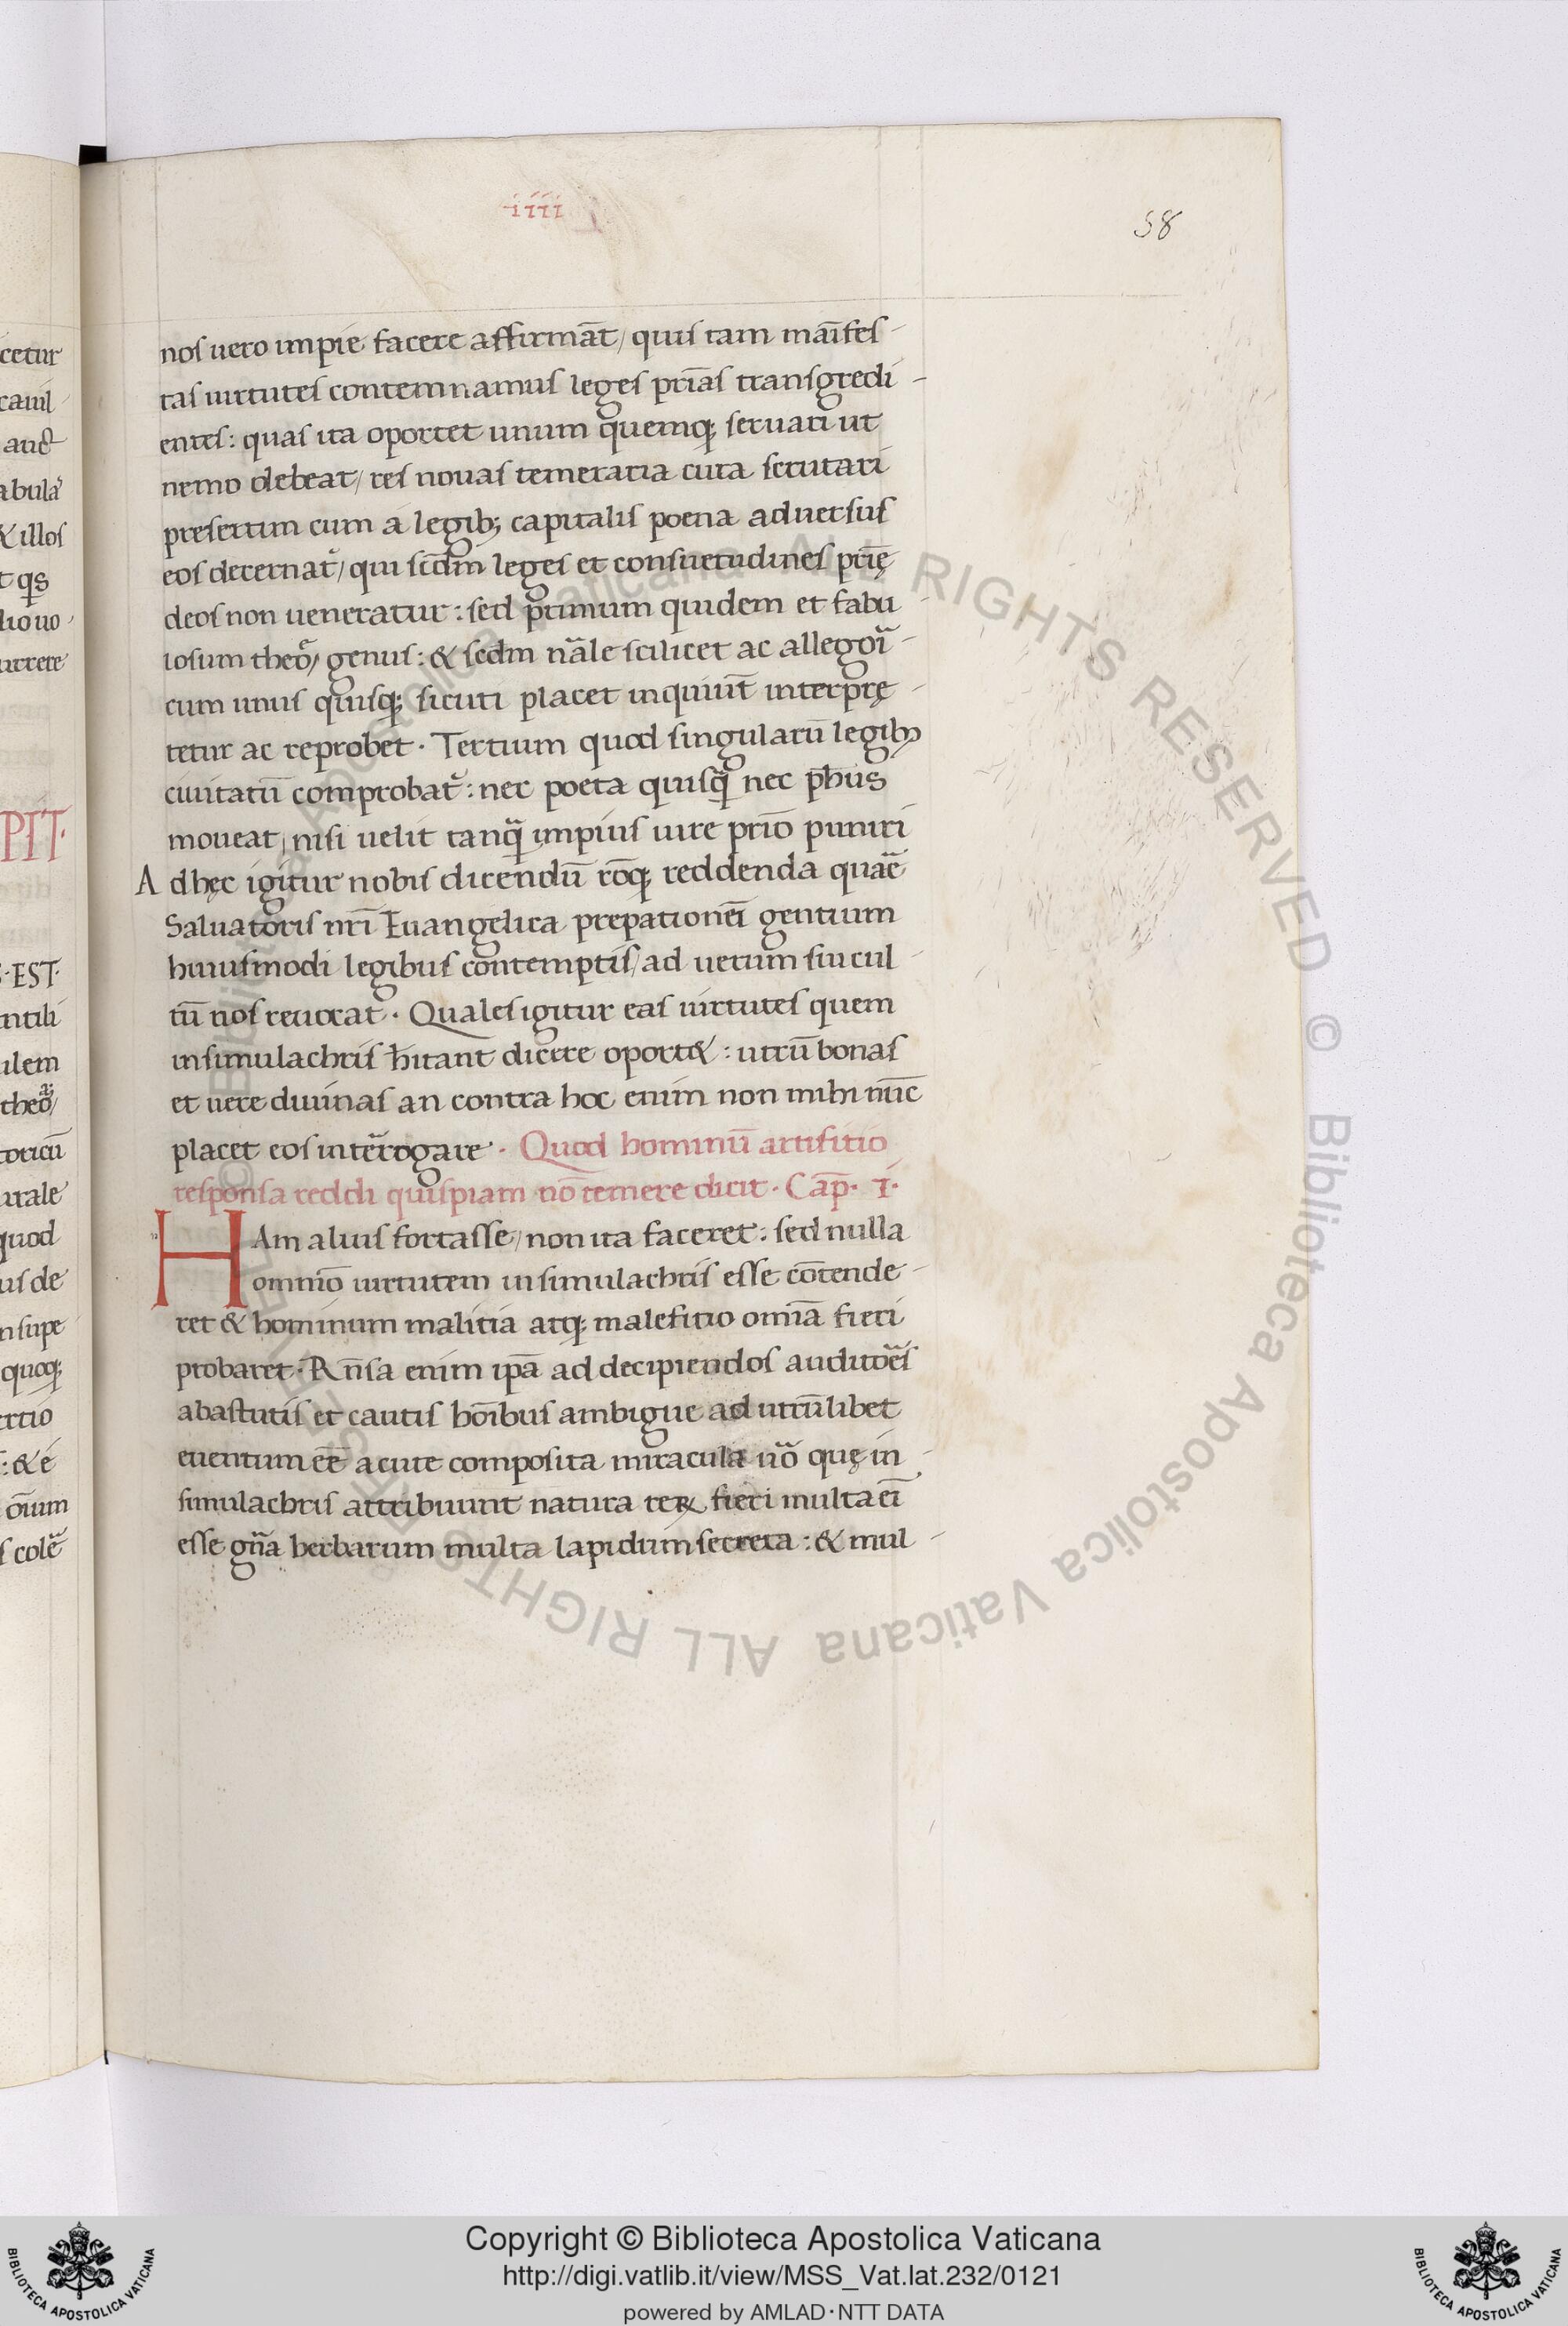 ·iiii·
58
nos uero impie facere affirmāt/ quis tam maīfes-
tas uirtutes contemnamus leges pr̄ias transgredi-
entes: quas ita oportet unum quemq; seruari ut
nemo debeat/ res nouas temeraria cura scrutari
presertim cum a legib; capitalis poena aduersus
eos decernat᷑/ qui scd̄m leges et consuetudines pr̄ię
deos non ueneratur: sed primum quidem et fabu
losum theo᷑/ genus: & sedm nāle scilicet ac allegorī-
cum unus quisq; sicuti placet inquiūt interprę-
tetur ac reprobet. Tertium quod singularū legibꝰ
ciuitatū comprobat᷑: nec poeta quisq̄ nec ph̄us
moueat/ nisi uelit tanq̄ impius iure pr̄io puniri
Ad hęc igitur nobis dicendū rōq; reddenda quare
Saluatoris nr̄i Euangelica prepationeī gentium
huiusmodi legibus contemptis/ ad uerum sui cul-
tū nos reuocat. Quales igitur eas uirtutes quem
in simulachris h̄itant dicere oport&: utrū bonas
et uere diuinas an contra hoc enim non mihi nūc
placet eos interrogare. Quod hominū artifitio
responsa reddi quispiam nō temere dicit. Cap̄. I.
HAm alius fortasse/ non ita faceret: sed nulla
omnīo uirtutem in simulachris esse cōtende-
ret & hominum malitia atq; malefitio omīa fieri
probaret. Rn̄sa enim ip̄a ad decipiendos auditōes
ab astutis et cautis hōibus ambigue ad utrūlibet
euentum eē acute composita miracula uō quę in-
simulachris attribuunt natura rerꝝ fieri multa eī
esse gn̄a herbarum multa lapidum secreta: & mul-
cetur
cauil
abula᷑
& illos
t qs
lio uo
urrere
PIT·
S·EST·
ntili
ilem
theo᷑/
toricū
urale
quod
us de
n supe
quoq;
ertio
: & e
ōium
s colē
Copyright © Biblioteca Apostolica Vaticana
http://digi.vatlib.it/view/MSS_Vat.lat.232/0121
powered by AMLAD·NTT DATA
BIBLIOTECA APOSTOLICA VATICANA
BIBLIOTECA APOSTOLICA VATICANA
© Biblioteca Apostolica Vaticana ALL RIGHTS RESERVED © Biblioteca Apostolica Vaticana ALL RIGHTS RESERVED